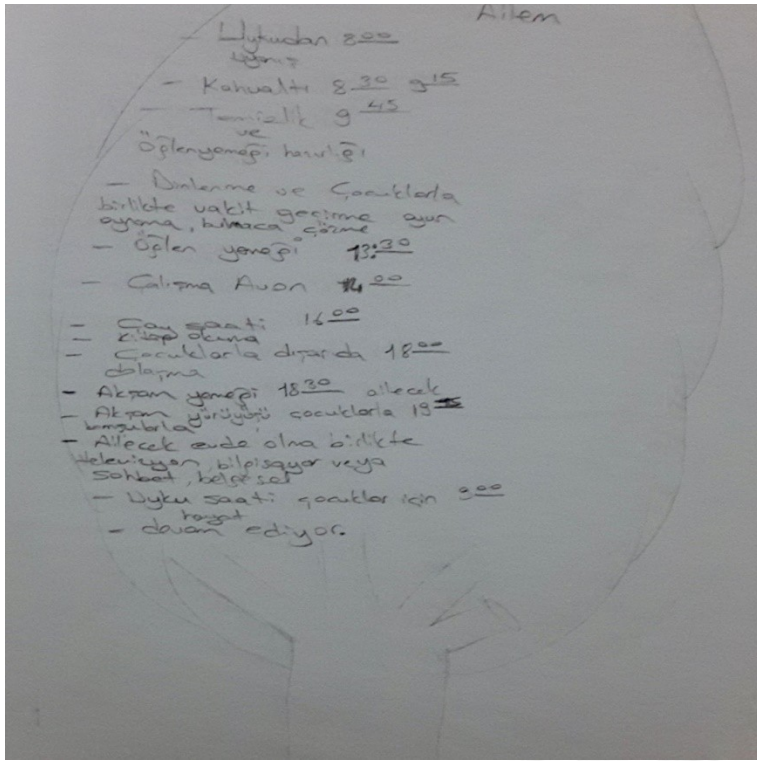 Ailem
- Uykudan 8 00
uyanış
- Kahvaltı 8 30 9 15
- Temizlik 9 45
ve
Öğlenyemeği hazırlığı
- Dinlenme ve Çocuklarla
birlikte vakit geçirme oyun
oynama, bulmaca çözme
- Öğlen yemeği 13:30
- Çalışma Avon 14 00
- Çay saati 16 00
- kitap okuma
- Çocuklarla dışarıda 18 00
dolaşma
- Akşam yemeği 18 30 ailecek
- Akşam yürüyüşü çocuklarla 19
komşularla
- Ailecek evde olma birlikte
televizyon, bilgisayar veya
sohbet, belgesel
- Uyku saati çocuklar için 9 00
hayat
- devam ediyor.